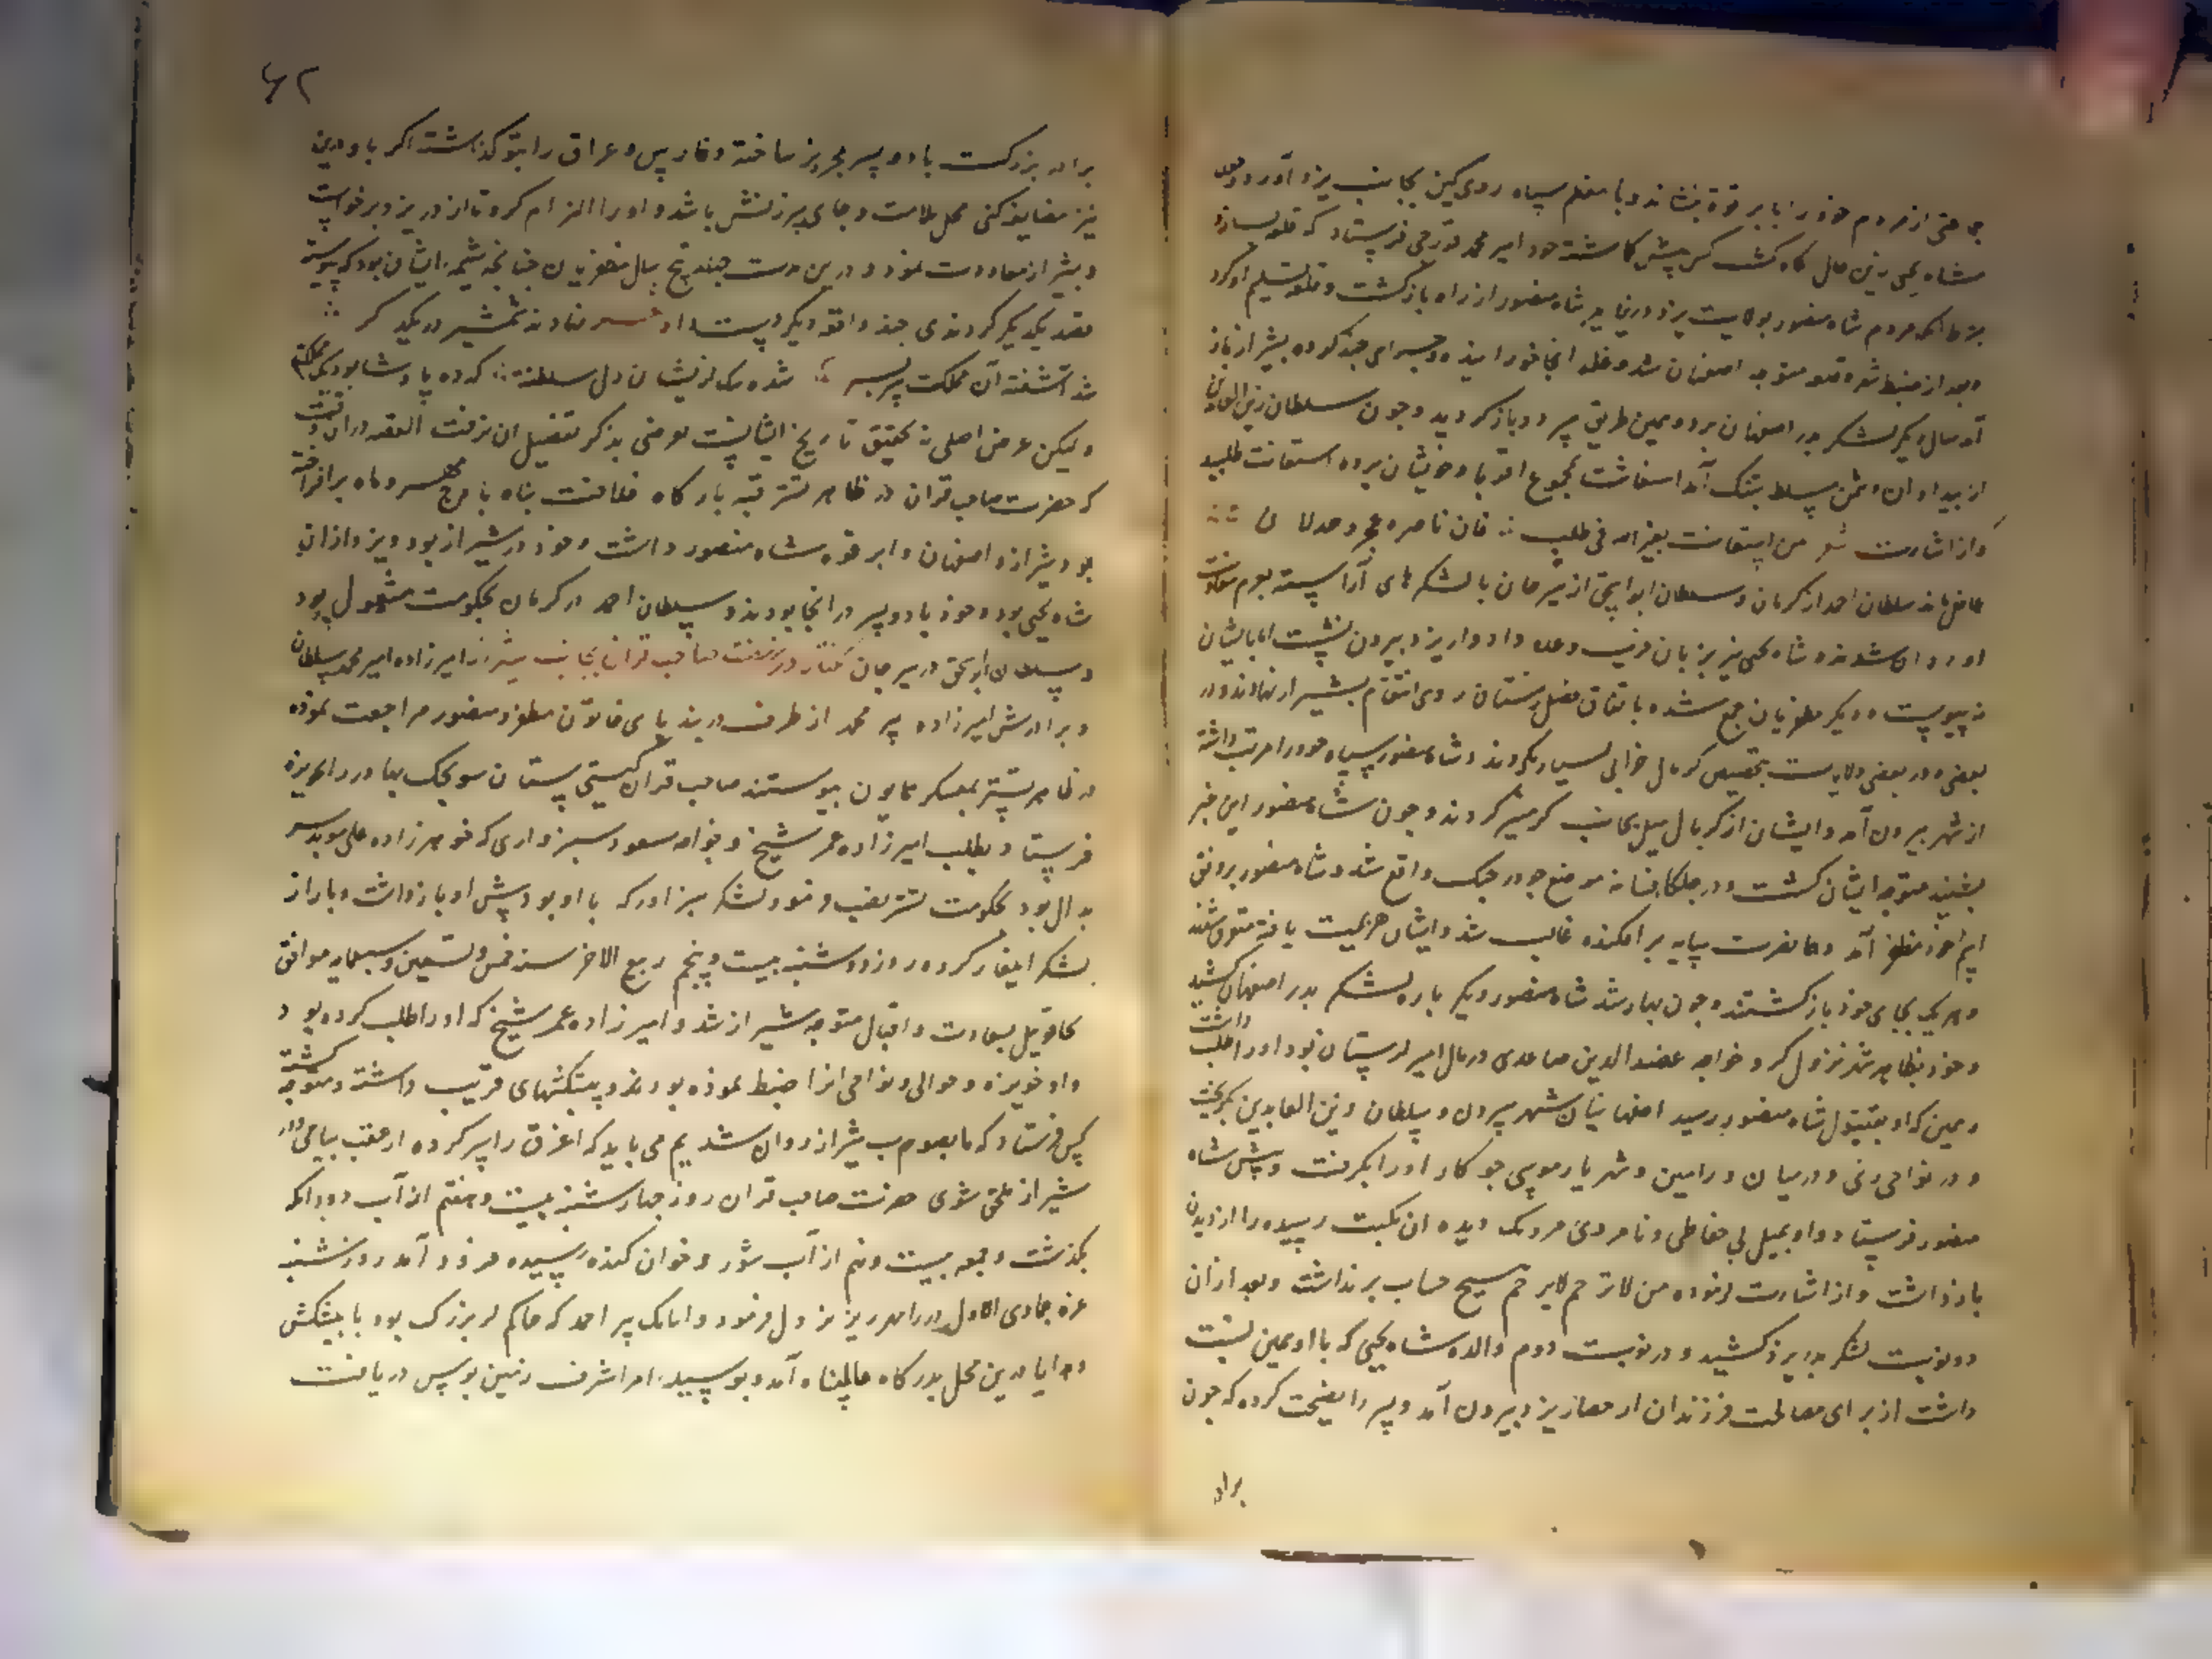 جمعی از مردم خود را با برقوة بنشاند و با معظم سپاه روی کین بجانب یزد آورد و چون
شاه یحیی درین حال کس پیش کماشته خود امیر محمد قورجی فرستاد که قلعه بسپارد
مردم شاه منصور بولایت یزد در نیاید شاه منصور از راه بازکشت و قلعه تسلیم او کرد
و بعد از ضبط قلعه متوجه اصفهان شد و غله انجا خورانیده و چند کرده بشیراز باز
آمد سال دیکر لشکر بدر اصفهان برد و بهمین طریق باز کردید و چون سلطان زین العابدین
از بیداد آن دشمن مسلط بتنک آمد استغاثت بمجموع اقربا و خویشان برده استعانت طلبید
و از اشارت شعر من استعان بغیر الله فی طلب ∴ فان ناصره عجز و خذلان ∴
غافل ماند سلطان احمد از کرمان و سلطان ابو اسحق از سیرجان با لشکرهای آراسته بعزم معاونت
او روان شدند و شاه یحیی نیز بزبان فریب وعده داد و از یزد بیرون نشست اما بایشان
نه پیوست و دیکر مظفریان جمع شده باتفاق فصل زمستان روی انتقام بشیراز نهادند و در
بعضی ولایت بتخصیص کربال خرابی بسیار بکردند و شاه منصور سپاه خود را مرتب داشته
از شهر بیرون آمد و ایشان از کربال میل بجانب کرمسیر کردند و چون شاه منصور این خبر
بشنید متوجه ایشان کشت و در جلکاء فسا به موضع جنک واقع شد و شاه منصور بر وفق
اسم خود مظفر آمد و همای نصرت سایه بر افکنده غالب شد و ایشان هزیمت یافته متفرق شدند
و هر یک بجای خود بازکشتند و چون بهار شد شاه منصور دیکر باره لشکر بدر اصفهان کشید
و خود بظاهر شهر نزول کرد و خواجه عضد الدین صاعدی در مال امیر لرستان بود او را طلب داشت
و همین که او بقیتول شاه منصور رسید اصفهانیان شهر بیرون و سلطان زین العابدین بکریخت
و در نواحی ری و درمیان ورامین و شهریار موسی جوکار او را بکرفت و پیش شاه
منصور فرستاد و او بمیل بی حفاظی و نامردی مردمک دیده آن نکبت رسیده را از دیدن
بازداشت و از اشارت من لا ترحم لا یرحم هیچ حساب بر نداشت و بعد از آن
دو نوبت لشکر بدر یزد کشید و در نوبت دوم والده شاه یحیی که با او همین نسبت
داشت از برای مصالحت فرزندان از حصار یزد بیرون آمد و پسر را نصیحت کرده که چون
براد
۶۲
برادر بزرکت با دو پسر بجزیز ساخته و فارس و عراق را بتو کذاشته اکر با او درین
نیز مضایقه کنی محل ملامت و جای سرزنش باشد و او را الزام کرد تا از در یزد برخواست
و بشیراز معاودت نمود و درین مدت چهار پنج سال مظفریان چنانچه شیمه ایشان بود که پیوسته
قصد یکدیکر کردندی چند واقعه دیکر دست داد شعر نهادند شمشیر در یکدکر ∴
شد آشفته آن مملکت سربسر ∴ شده ملک از ایشان دل سلطنت ∴ که ده پادشا بود و یک مملکت
ولیکن غرض اصلی نه تحقیق تاریخ ایشانست تعرضی بذکر تفصیل آن نرفت القصه در آن وقت
که حضرت صاحب قران در ظاهر تستر قبه بارکاه خلافت پناه باوج مهر و ماه بر افراخته
بود شیراز و اصفهان و ابرقوه شاه منصور داشت و خود در شیراز بود و یزد از آن
شاه یحیی بود و خود با دو پسر در انجا بودند و سلطان احمد در کرمان بحکومت مشغول بود
و سلطان ابو اسحق در سیرجان کفتار در نهضت صاحب قران بجانب شیراز امیرزاده امیر محمد سلطان
و برادرش امیرزاده پیر محمد از طرف دربند پای خاتون مظفر و منصور مراجعت نموده
در ظاهر تستر بمعسکر همایون پیوستند صاحب قران کیتی ستان سونجک بهادر را بحویزه
فرستاد بطلب امیرزاده عمر شیخ و خواجه مسعود سبزواری که خواهرزاده علی موید سر
بدال بود بحکومت تستر نصب فرمود لشکر سبزوار که با او بود پیش او بازداشت و باز از
لشکر ایلغار کرده روز دوشنبه بیست و پنجم ربیع الاخر سنه خمس و تسعین و سبعمایه موافق
تخاقوی ئیل بسعادت و اقبال متوجه شیراز شد و امیرزاده عمر شیخ که او را طلب کرده بود
و او حویزه و حوالی و نواحی انرا ضبط نموده بود و پیشکشهای قریب داشته و متوجه کشته
کس فرستاد که ما بصوب شیراز روان شدیم می باید که اغرق را سر کرده از عقب بیایی و در
شیراز ملحق شوی حضرت صاحب قران روز چهارشنبه بیست و هفتم از آب دودانکه
بکذشت و جمعه بیست و نهم از آب شور و خوان کنده رسیده فرود آمد روز شنبه
غره جمادی الاول در رامهرمز نزول فرمود و اتابک پیر احمد که حاکم لر بزرک بود با پیشکش
و هدایا درین محل بدرکاه عالم پناه آمد و بوسیله امرا شرف زمین بوس دریافت